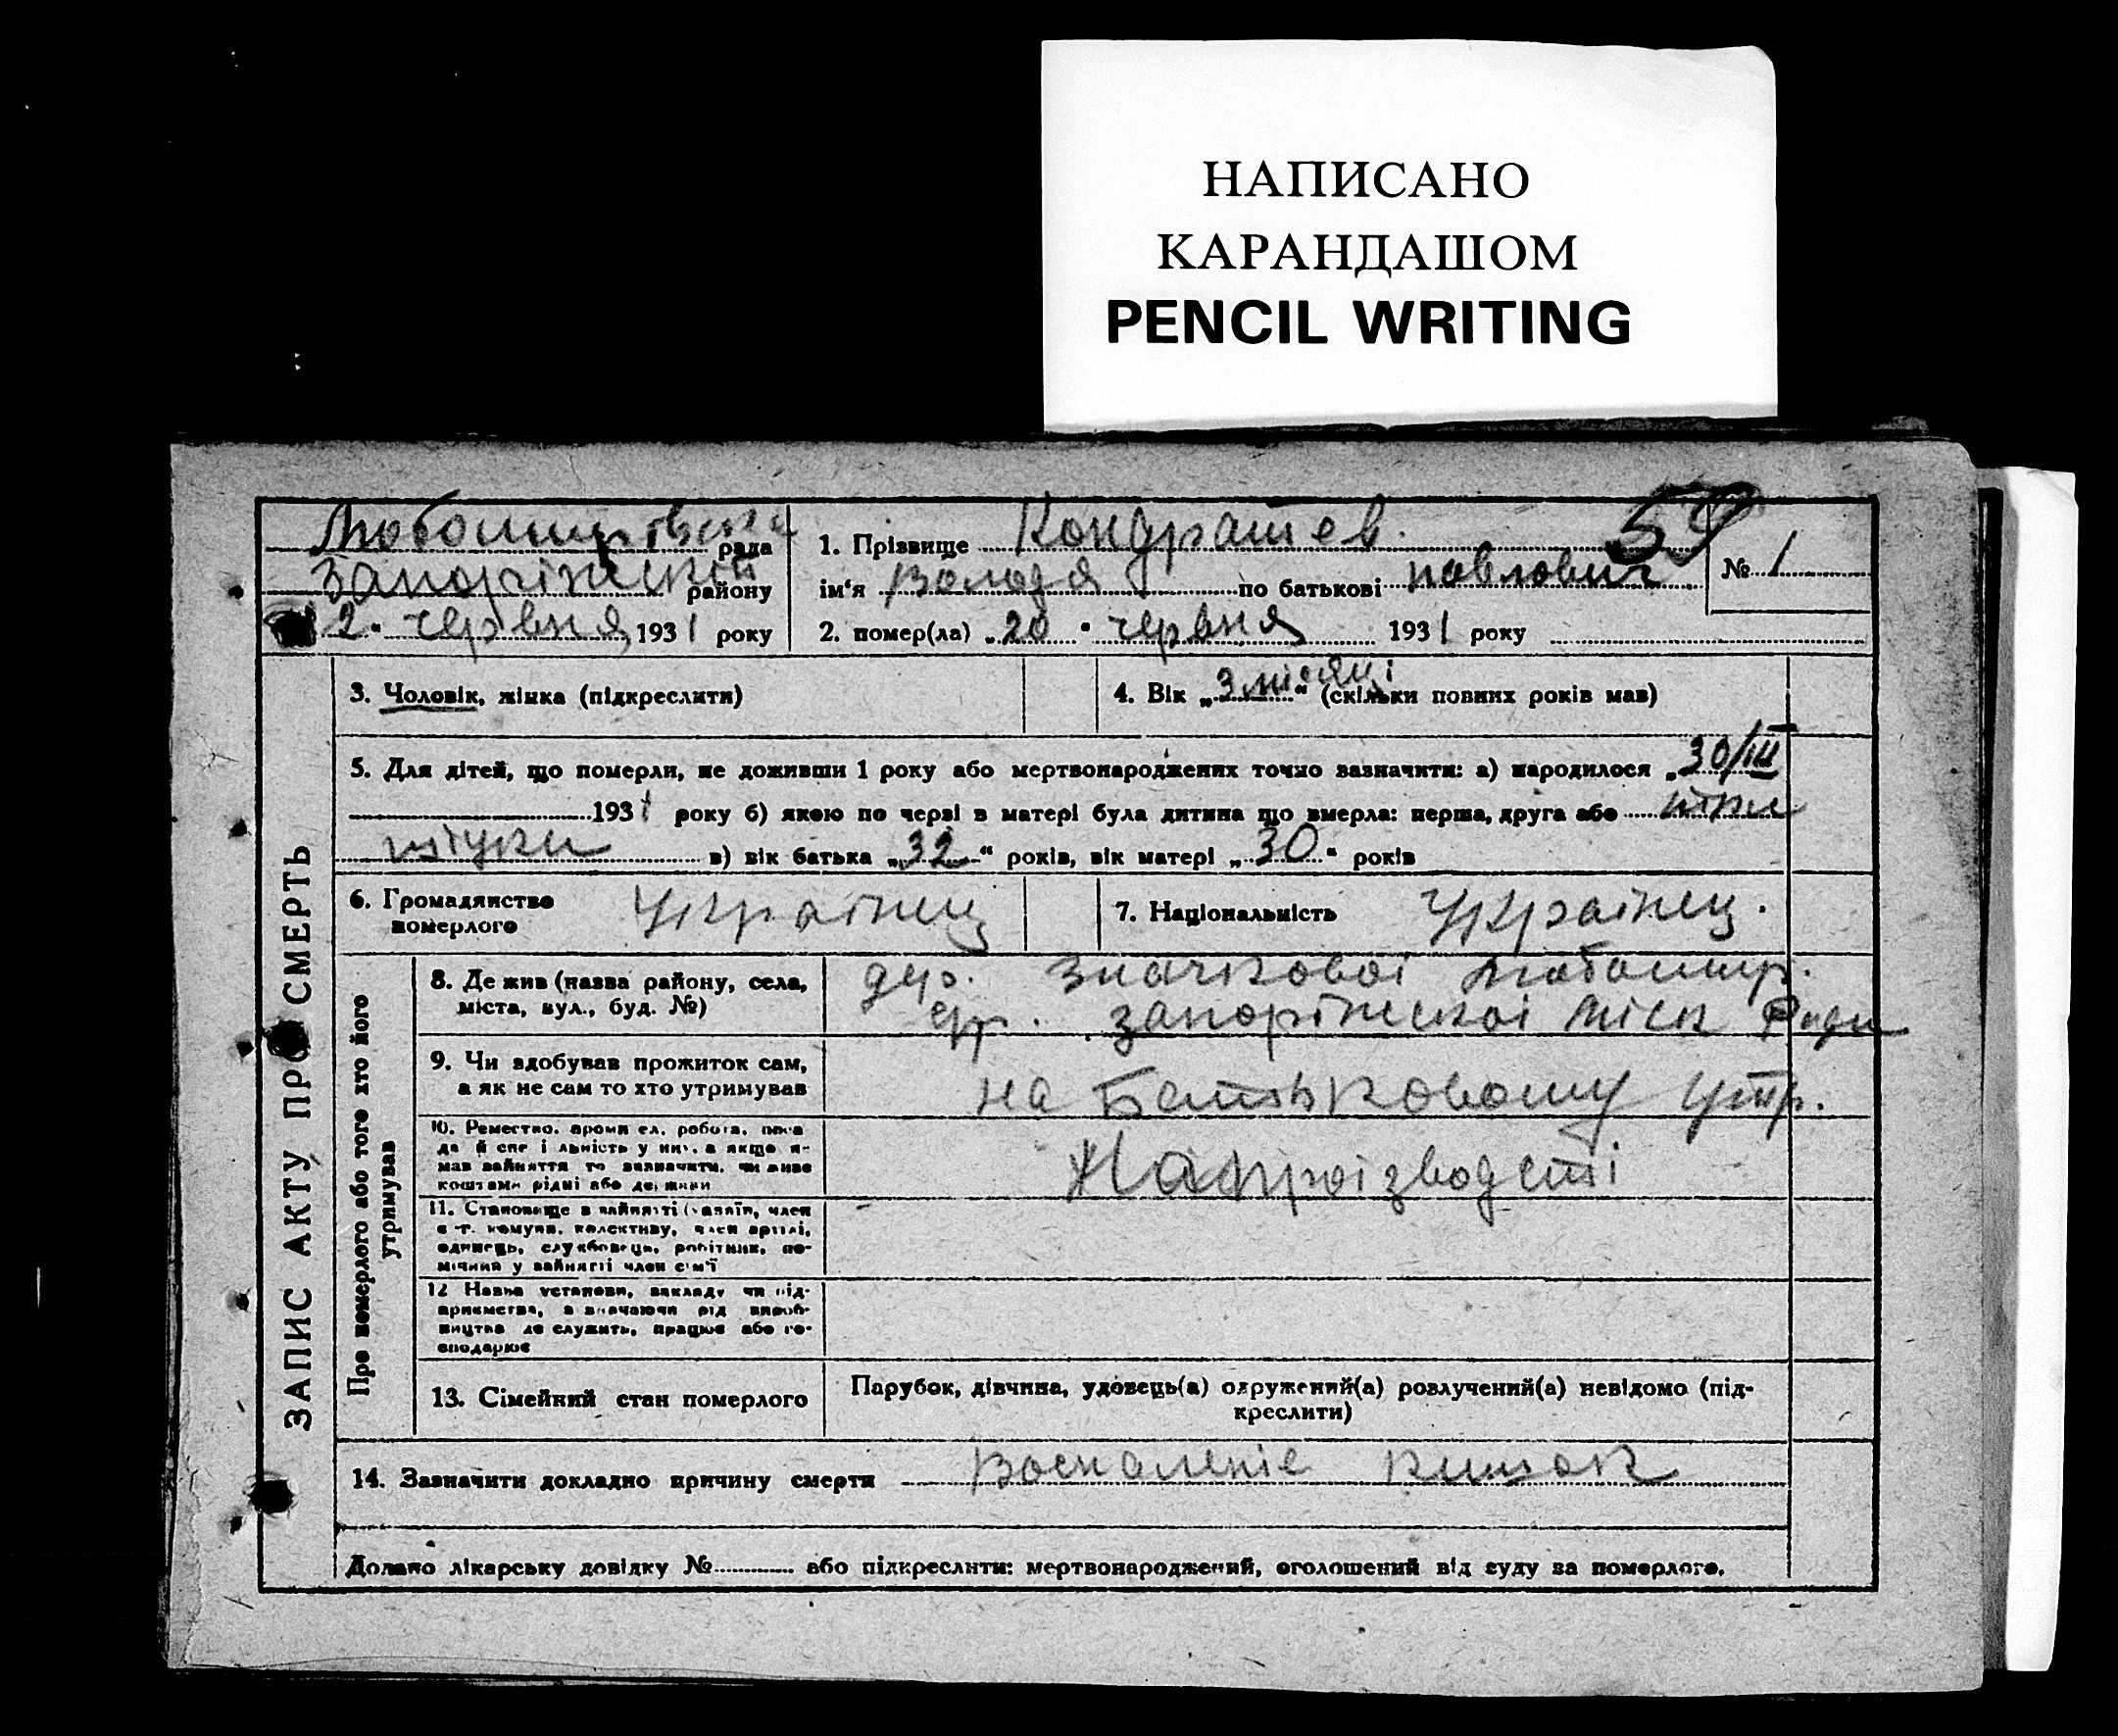 НАПИСАНО
КАРАНДАШОМ
PENCIL WRITING
рада
район у
2. червня 1931 року
1. Прізвище Кондрашев.
ім‘я Володя по батькові павлович
№ 1
2. помер(ла) „20" червня 1931 року
3. Чоловік, жінка (підкреслити)
4. Вік „3 місяці“ (скільки повних років мав)
5. Для дітей, що померли, не доживши 1 року або мертвонароджених точно зазначити: а) народилося „30/III
1931 року б) якою по черзі в матері була дитина що вмерла: перша, друга або три
штуки в) вік батька „32“ років, вік матері „30“ років
6. Громадянство
померлого
Українец
7. Національність Українец.
ЗАПИС АКТУ ПРО СМЕРТЬ
Про померлого або того хто його
утримував
8. Де жив (назва району, села,
міста, вул., буд. №)
дер. Значкової Любомир.
запоріжскоі міск Ради
9. Чи здобував прожиток сам,
а як не сам то хто утримував
на Батьковому утр.
10. Ремество, промисел, робота, поса
да й спеціальність у них, а якщо н-
мав зайняття то зазначити, чи живе
коштами рідні або держави
11. Становище в зайнятті (хазяїн, член
с-г. комуни, колективу, член артілі,
одинець, службовець, робітник, по-
мічний у зайнятті член сім'ї
12 Назва установи, закладу чи під-
приємства, зазначаючи рід вироб-
ництва де служить, працює або го-
сподарює
13. Сімейний стан померлого
Парубок, дівчина, удовець(а) одружений(а) розлучений(а) невідомо (під-
креслити)
14. Зазначити докладно причину смерти Воспаленіе кишок
Додано лікарську довідку № або підкреслити: мертвонароджений, оголошений від суду за померлого.